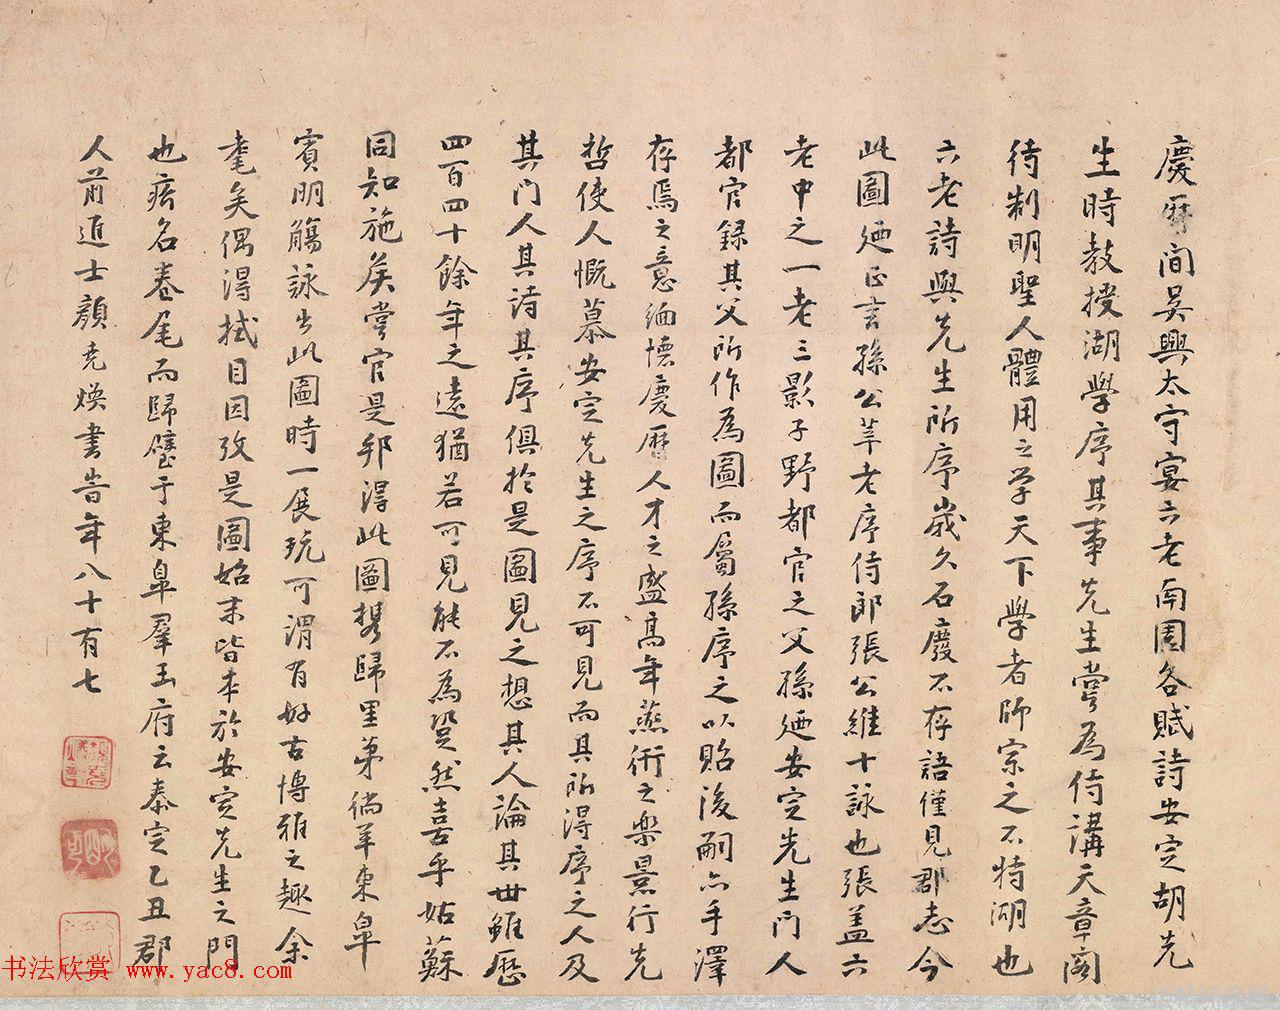 慶曆間吳興太守宴六老南園各賦詩安定胡先
生時教授湖學序其事先生嘗為侍講天章閣
待制明聖人體用之學天下學者師宗之不特湖也
六老詩與先生所序歲久石廢不存語僅見郡志今
此圖廼正書孫公莘老序侍郎張公維十詠也張盖六
老中之一老三影子野都官之父孫廼安定先生門人
都官録其父所作為圖而屬孫序之以貽後嗣亦手澤
存焉之意緬懷慶曆人才之盛高年燕衎之樂景行先
哲使人慨慕安定先生之序不可見而其所得序之人及
其門人其詩其序俱於是圖見之想其人論其世雖歷
四百四十餘年之遠猶若可見能不為跫然喜乎姑蘇
同知施矦嘗官是邦得此圖携歸里第徜羊東皐
賓明觴詠出此圖時一展玩可謂有好古博雅之趣余
耄矣偶得拭目因攷是圖始末皆本於安定先生之門
也疥名卷尾而歸璧于東皐羣玉府云泰定乙丑郡
人前進士顏堯煥書告年八十有七
书法欣赏 www.yac8.com